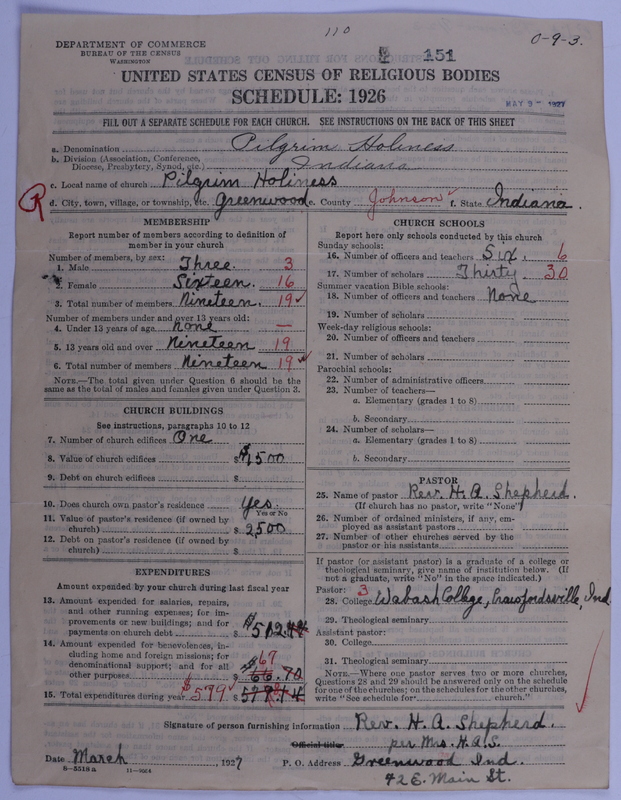 110
DEPARTMENT OF COMMERCE
BUREAU OF THE CENSUS
WASHINGTON
151
0-9-3.
UNITED STATES CENSUS OF RELIGIOUS BODIES
SCHEDULE: 1926
MAY 9 - 1927
FILL OUT A SEPARATE SCHEDULE FOR EACH CHURCH. SEE INSTRUCTIONS ON THE BACK OF THIS SHEET
a. Denomination Pilgrim Holiness
b. Division (Association, Conference, Diocese, Presbytery, Synod, etc.) Indiana
c. Local name of church Pilgrim Holiness
R d. City, town, village, or township, etc. Greenwood e. County Johnson f. State Indiana.
MEMBERSHIP
Report number of members according to definition of
member in your church
Number of members, by sex:
1. Male Three. 3
2. Female Sixteen. 16
3. Total number of members Nineteen. 19
Number of members under and over 13 years old:
4. Under 13 years of age None —
5. 13 years old and over Nineteen 19
6. Total number of members Nineteen 19
NOTE.—The total given under Question 6 should be the
same as the total of males and females given under Question 3.
CHURCH BUILDINGS
See instructions, paragraphs 10 to 12
7. Number of church edifices One
8. Value of church edifices $1,500
9. Debt on church edifices $
10. Does church own pastor's residence Yes.
Yes or No
11. Value of pastor's residence (if owned by
church) $2,500
12. Debt on pastor's residence (if owned by
church) $
EXPENDITURES
Amount expended by your church during last fiscal year
13. Amount expended for salaries, repairs,
and other running expenses; for im-
provements or new buildings; and for
payments on church debt $512.44
14. Amount expended for benevolences, in-
cluding home and foreign missions; for
denominational support; and for all
other purposes $66.70 67
15. Total expenditures during year $579
CHURCH SCHOOLS
Report here only schools conducted by this church
Sunday schools:
16. Number of officers and teachers Six 6
17. Number of scholars Thirty 30
Summer vacation Bible schools:
18. Number of officers and teachers None
19. Number of scholars
Week-day religious schools:
20. Number of officers and teachers
21. Number of scholars
Parochial schools:
22. Number of administrative officers
23. Number of teachers—
a. Elementary (grades 1 to 8)
b. Secondary
24. Number of scholars—
a. Elementary (grades 1 to 8)
b. Secondary
PASTOR
25. Name of pastor Rev. H. A. Shepherd.
(If church has no pastor, write "None")
26. Number of ordained ministers, if any, em-
ployed as assistant pastors
27. Number of other churches served by the
pastor or his assistants
If pastor (or assistant pastor) is a graduate of a college or
theological seminary, give name of institution below. (If
not a graduate, write "No" in the space indicated.)
Pastor: 3
28. College Wabash College, Crawfordsville, Ind
29. Theological seminary
Assistant pastor:
30. College
31. Theological seminary
NOTE.—Where one pastor serves two or more churches,
Questions 28 and 29 should be answered only on the schedule
for one of the churches; on the schedules for the other churches,
write "See schedule for church."
Signature of person furnishing information Rev. H. A. Shepherd.
Official title per Mrs. H.A.S.
Date March 1927
P. O. Address Greenwood Ind.
8-5518 a 11-9004
42 E. Main St.